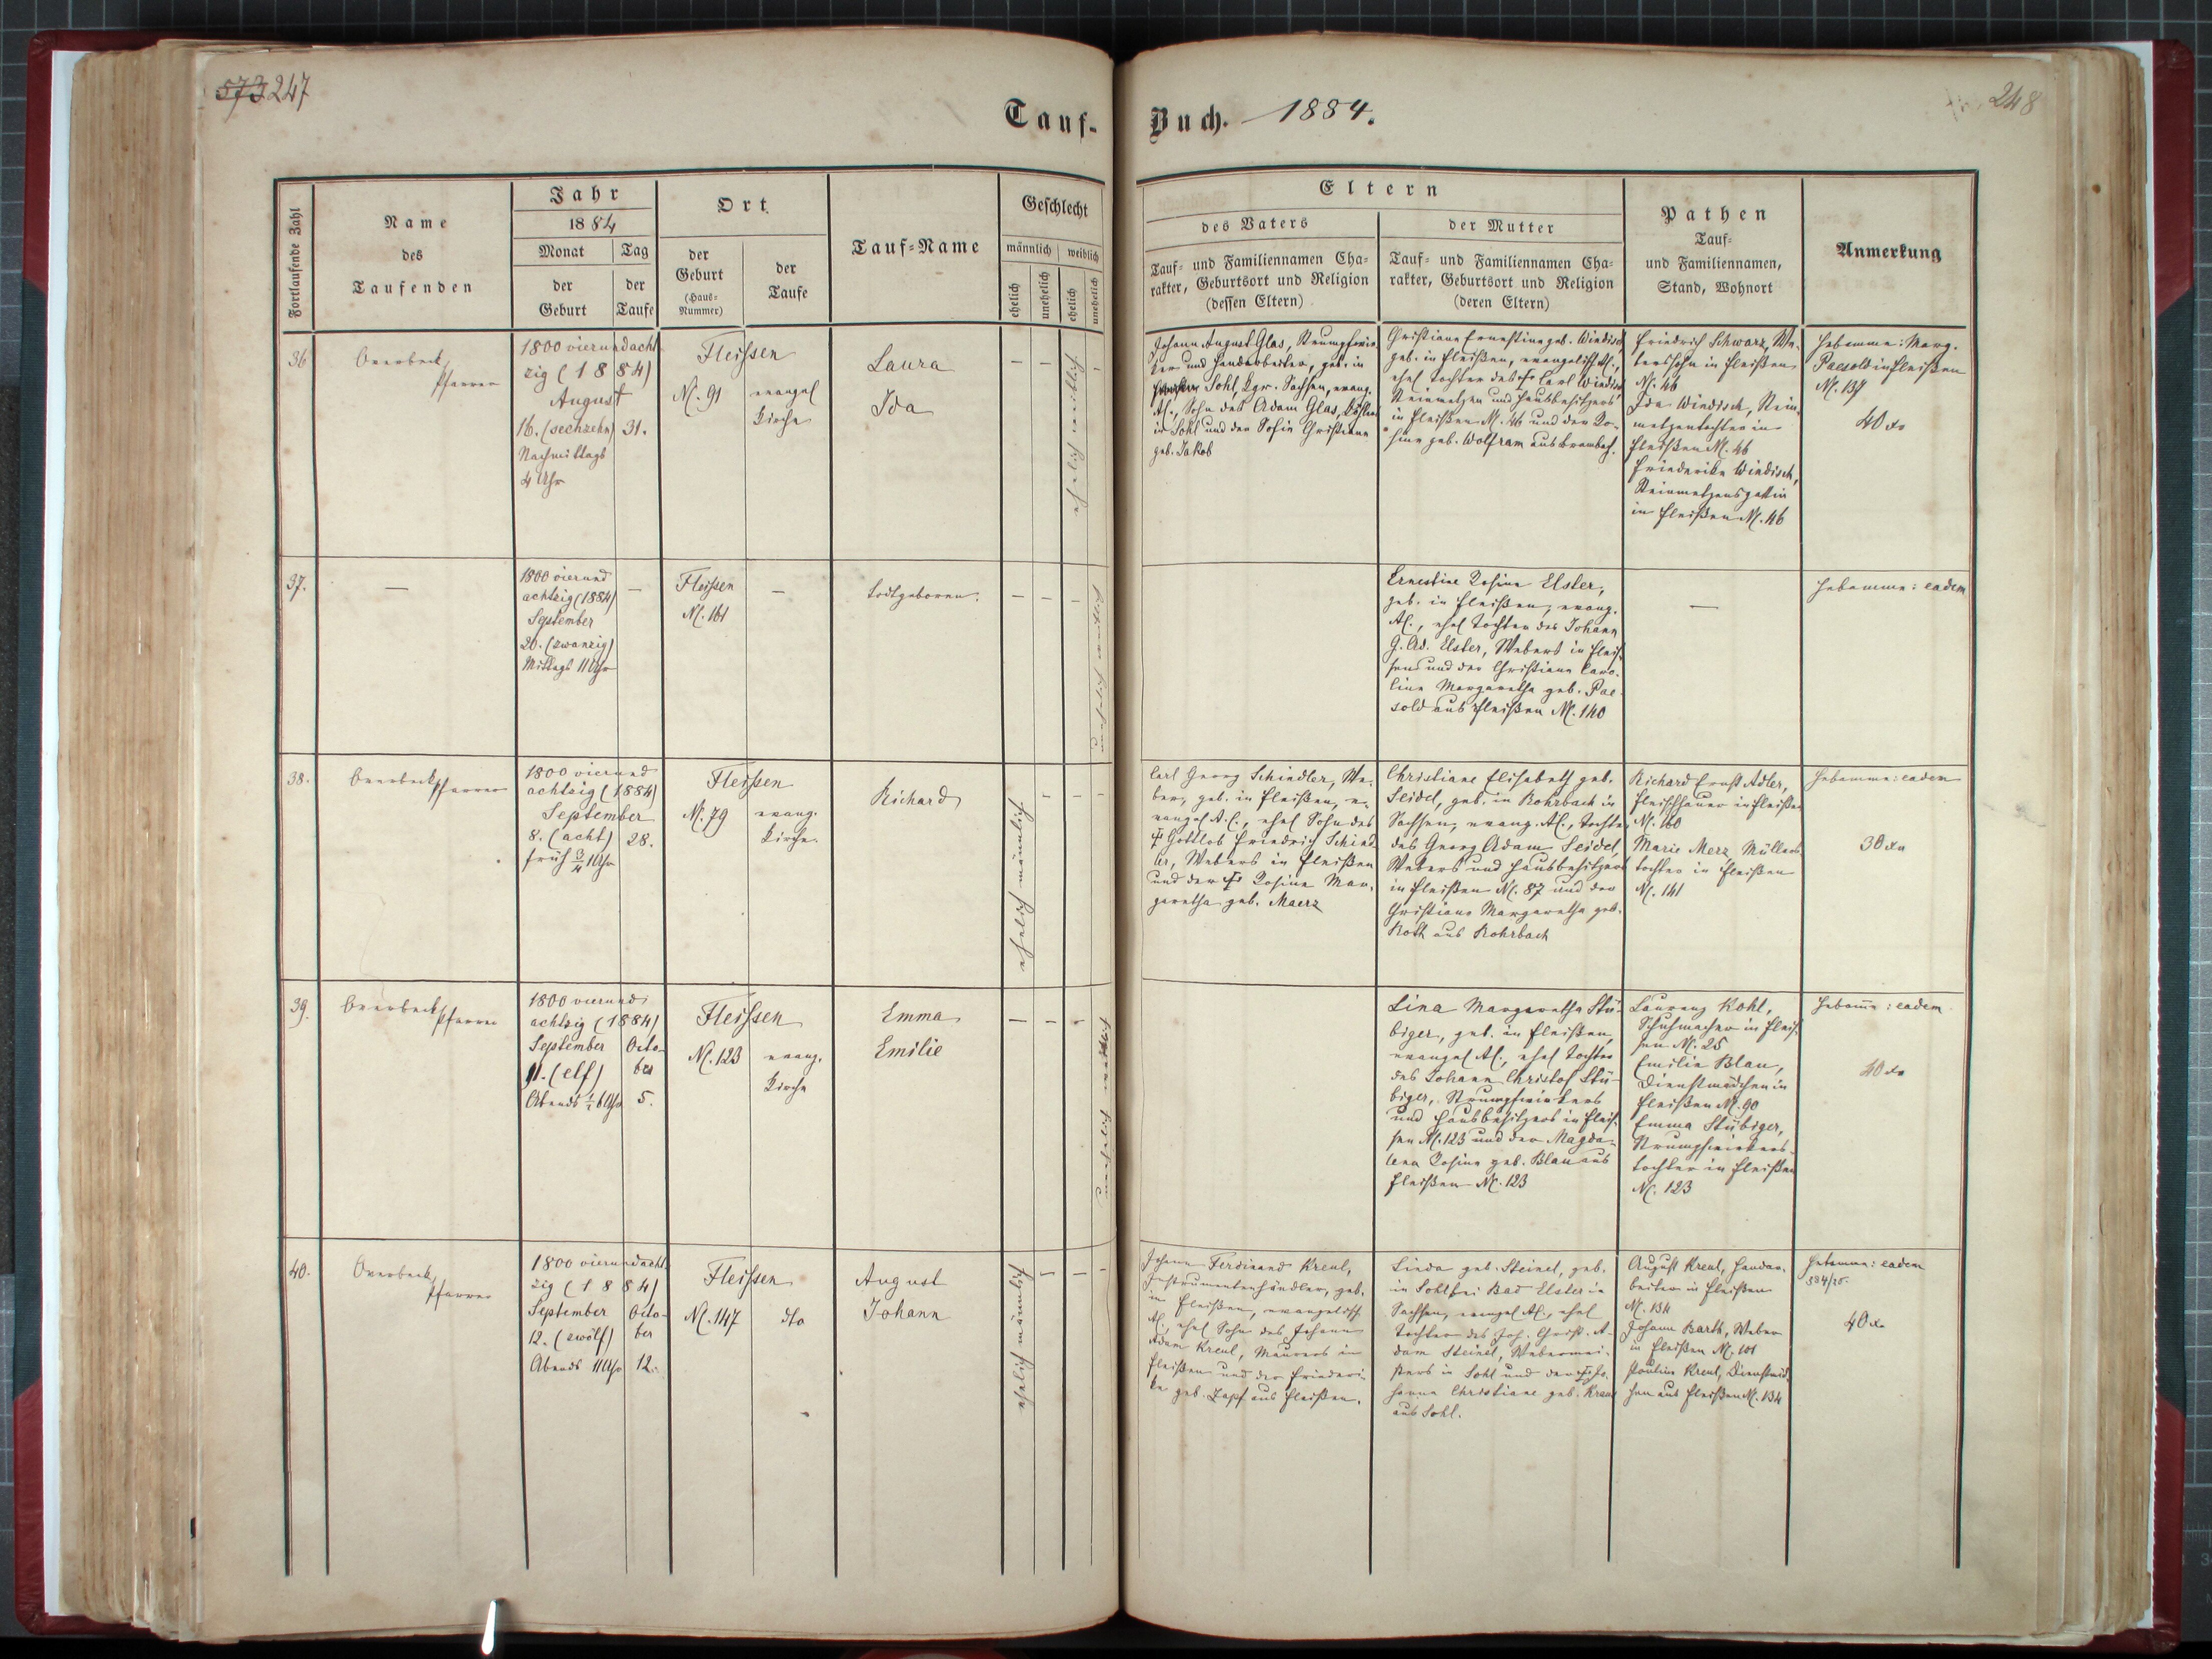 573 247
248
Tauf-
Buch. 1884.
Fortlaufende Zahl
Name
des
Taufenden
Jahr
1884
Monat
der
Geburt
Tag
der
Taufe
Ort
der
Geburt
(Haus-
Nummer)
der
Taufe
Tauf-Name
Geschlecht
männlich
weiblich
ehelich
unehelich
ehelich
unehelich
Eltern
des Vaters
Tauf- und Familiennamen Cha-
rakter, Geburtsort und Religion
(dessen Eltern)
der Mutter
Tauf- und Familiennamen Cha-
rakter, Geburtsort und Religion
(deren Eltern)
Pathen
Tauf-
und Familiennamen,
Stand, Wohnort
Anmerkung
36
Overbeck,
Pfarrer
1800 vierundacht-
zig (1884)
August
16. (sechzehn) 31.
Nachmittags
4 Uhr
Fleissen
N. 91
evangel
Kirche
Laura
Ida
— —
ehelich weiblich
Johann August Glas, Strumpfwir-
ker und Handarbeiter, geb. in
Sohl, Kgr. Sachsen, evang.
AC., Sohn des Adam Glas,
in Sohl und der Sofie Christiane
geb. Jakob
Christiane Ernestine geb. Windisch
geb. in Fleißen, evangelisch AC.,
ehel Tochter des † Carl Windisch
Steinmetzen und Hausbesitzers
in Fleißen N. 46 und der Ro-
sine geb. Wolfram aus Brambach.
Friedrich Schwarz, We-
berssohn in Fleißen
N. 46
Ida Windisch, Stein-
metzentochter in
Fleißen N. 46
Friederike Windisch,
Steinmetzensgattin
in Fleißen N. 46
Hebamme: Marg.
Paesold in Fleißen
N. 137
40 x
37.
—
1800 vierund
achtzig (1884)
September
20. (zwanzig)
Mittags 11 Uhr
—
Fleissen
N. 161
—
todtgeboren.
— — —
unehelich weiblich
Ernestine Rosine Elster,
geb. in Fleißen, evang.
AC., ehel Tochter des Johann
G. Ad. Elster, Webers in Fleis-
sen und der Christiane Caro-
line Margaretha geb. Pae-
sold aus Fleißen N. 140
—
Hebamme: eadem
38.
Overbeck, Pfarrer
1800 vierund
achtzig (1884)
September
8. (acht) 28.
früh 3/4 1 Uhr
Fleissen
N. 79
evang.
Kirche
Richard
ehelich männlich
Carl Georg Schindler, We-
ber, geb. in Fleißen, e-
vangel A.C., ehel Sohn des
† Gottlob Friedrich Schind-
ler, Webers in Fleißen
und der † Rosine Mar-
garetha geb. Maerz
Christiane Elisabeth geb.
Seidel, geb. in Rohrbach in
Sachsen, evang. AC., Tochter
des Georg Adam Seidel,
Webers und Hausbesitzers
in Fleißen N. 87 und der
Christiane Margaretha geb.
Roth aus Rohrbach
Richard Ernst Adler,
Fleischhauer in Fleißen
N. 160
Marie Merz Müllers-
tochter in Fleißen
N. 141
Hebamme: eadem
30 x
39.
Overbeck, Pfarrer
1800 vierund
achtzig (1884)
September Octo-
11. (elf) ber
Abends 1/2 6 Uhr 5.
Fleissen
N. 123
evang.
Kirche
Emma
Emilie
unehelich weiblich
Lina Margaretha Stü-
biger, geb. in Fleißen,
evangel AC., ehel Tochter
des Johann Christof Stü-
biger, Strumpfwirkers
und Hausbesitzers in Fleis-
sen N. 123 und der Magda-
lena Rosine geb. Blau aus
Fleißen N. 123
Laurenz Kohl,
Schuhmacher in Fleis-
sen N. 25
Emilie Blau,
Dienstmädchen in
Fleißen N. 90
Emma Stübiger,
Strumpfwirkers-
tochter in Fleißen
N. 123
Hebamme: eadem
40 x
40.
Overbeck,
Pfarrer
1800 vierundacht-
zig (1884)
September Octo-
12. (zwölf) ber
Abends 11 Uhr 12.
Fleissen
N. 147
dto
August
Johann
ehelich männlich
Johann Ferdinand Kreul,
Instrumentenhändler, geb.
in Fleißen, evangelisch
AC., ehel Sohn des Johann
Adam Kreul, Maurers in
Fleißen und der Friederi-
ke geb. Zapf aus Fleißen.
Linda geb. Steinel, geb.
in Sohl bei Bad Elster in
Sachsen, evangel AC., ehel
Tochter des Joh. Christ. A-
dam Steinel, Webermei-
sters in Sohl und der † Jo-
hanne Christiane geb. Kreul
aus Sohl.
August Kreul, Handar-
beiter in Fleißen
N. 134
Johann Barth, Weber
in Fleißen N. 101
Pauline Kreul,
aus Fleißen N. 134
Hebamme: eadem
584/25.
40 x